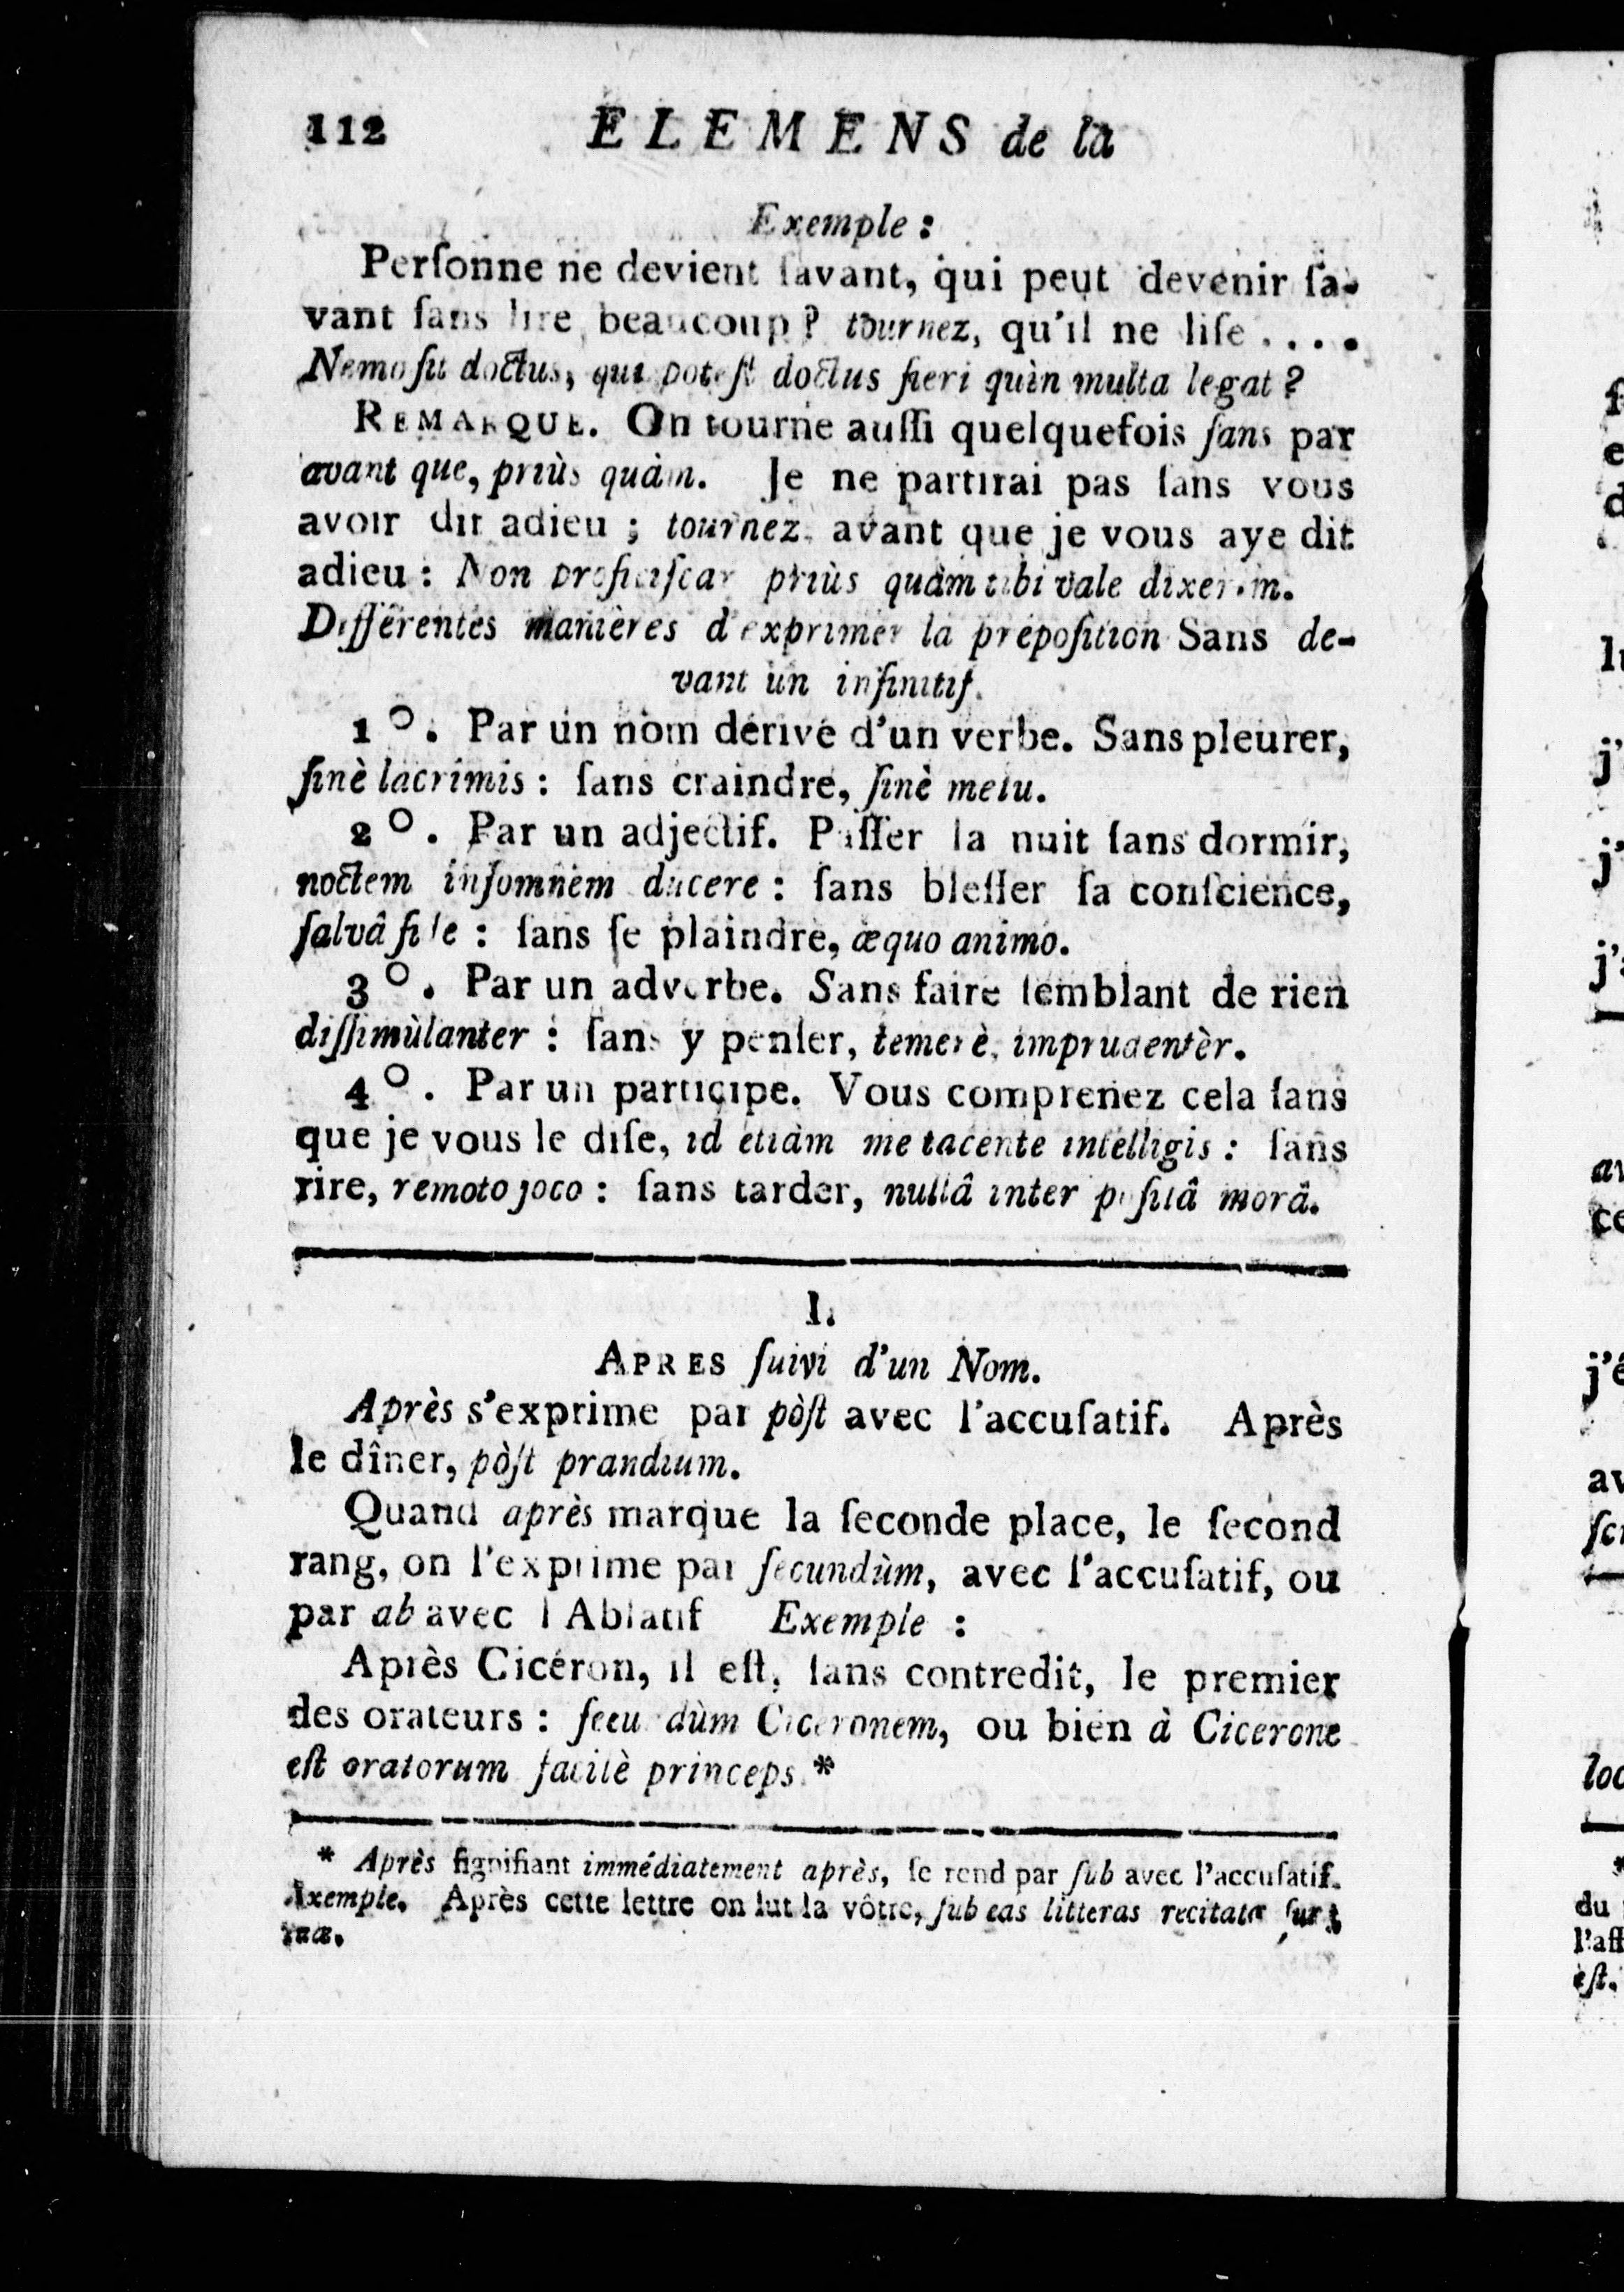 112 ELEMENS de la
Exemple :
Perſonne ne devient ſavant, qui peut devenir ſa-
vant ſans lire beaucoup ? tournez, qu'il ne liſe . . . .
Nemo fit doctus, qui poteſt doctus fieri quìn multa legat ?
REMARQUE. On tourne auſſi quelquefois ſans par
avant que, priùs quàm. Je ne partirai pas ſans vous
avoir dit adieu ; tournez, avant que je vous aye dit
adieu : Non proficiſcar priùs quàm tibi vale dixerim.
Différentes manières d'exprimer la prépoſition Sans de-
vant un infinitif.
1°. Par un nom dérivé d'un verbe. Sans pleurer,
ſinè lacrimis : ſans craindre, ſinè metu.
2°. Par un adjectif. Paſſer la nuit ſans dormir,
noctem inſomnem ducere : ſans bleſſer ſa conſcience,
ſalvâ fide : ſans ſe plaindre, æquo animo.
3°. Par un adverbe. Sans faire ſemblant de rien
diſſimùlanter : ſans y penſer, temerè, imprudentèr.
4°. Par un participe. Vous comprenez cela ſans
que je vous le diſe, id etiàm me tacente intelligis : ſans
rire, remoto joco : ſans tarder, nullâ inter poſitâ morâ.
I.
APRES ſuivi d'un Nom.
Après s'exprime par pòſt avec l'accuſatif. Après
le dîner, pòſt prandium.
Quand après marque la ſeconde place, le ſecond
rang, on l'exprime par ſecundùm, avec l'accuſatif, ou
par ab avec l'Ablatif Exemple :
Après Cicéron, il eſt, ſans contredit, le premier
des orateurs : ſecundùm Ciceronem, ou bien à Cicerone
eſt oratorum facilè princeps.*
* Après ſignifiant immédiatement après, ſe rend par ſub avec l'accuſatif.
Exemple. Après cette lettre on lut la vôtre, ſub eas litteras recitatæ ſunt
tuæ.